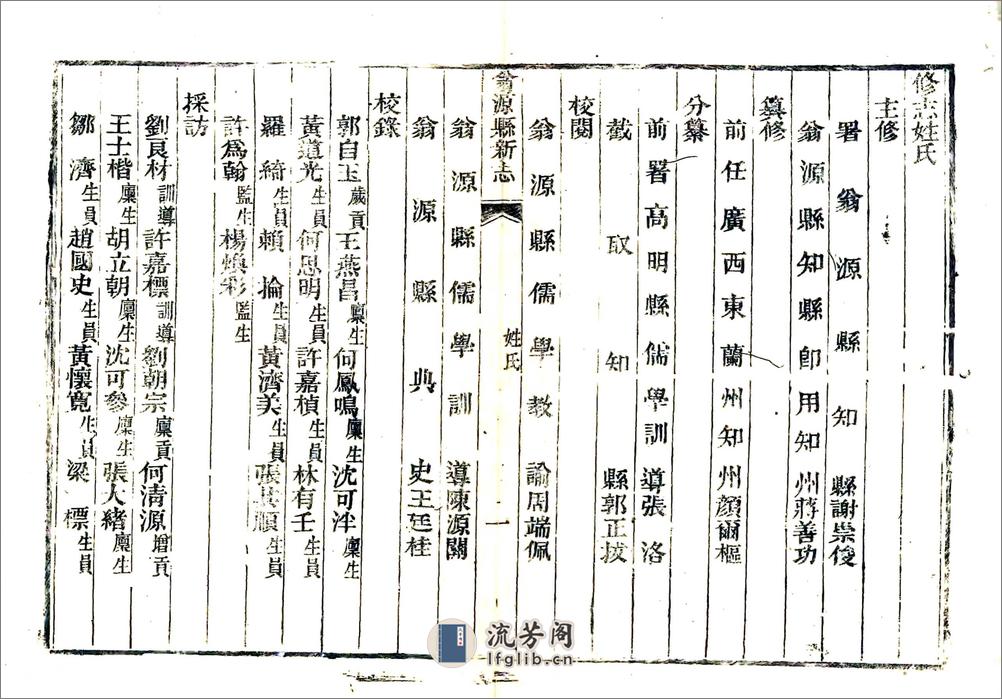 修志姓氏
主修
署翁源縣知縣謝崇俊
翁源縣知縣卽用知州蔣善功
纂修
前任廣西東蘭州知州顏爾樞
分纂
前署高明縣儒學訓導張洛
截取知縣郭正拔
校閱
翁源縣儒學教諭周端佩
翁源縣新志
姓氏
二
翁源縣儒學訓導陳源關
翁源縣典史王廷桂
校錄
郭自玉歲貢王燕昌廩生何鳳鳴廩生沈可泮廩生
黃道光生員何思明生員許嘉楨生員林有壬生員
羅綺生員賴掄生員黃濟美生員張其順生員
許爲翰監生楊煥彩監生
採訪
劉良材訓導許嘉標訓導劉朝宗廩貢何清源增貢
王士楷廩生胡立朝廩生沈可參廩生張大緒廩生
鄒濟生員趙國史生員黃懷寬生員梁標生員
流芳阁
lfglib.cn